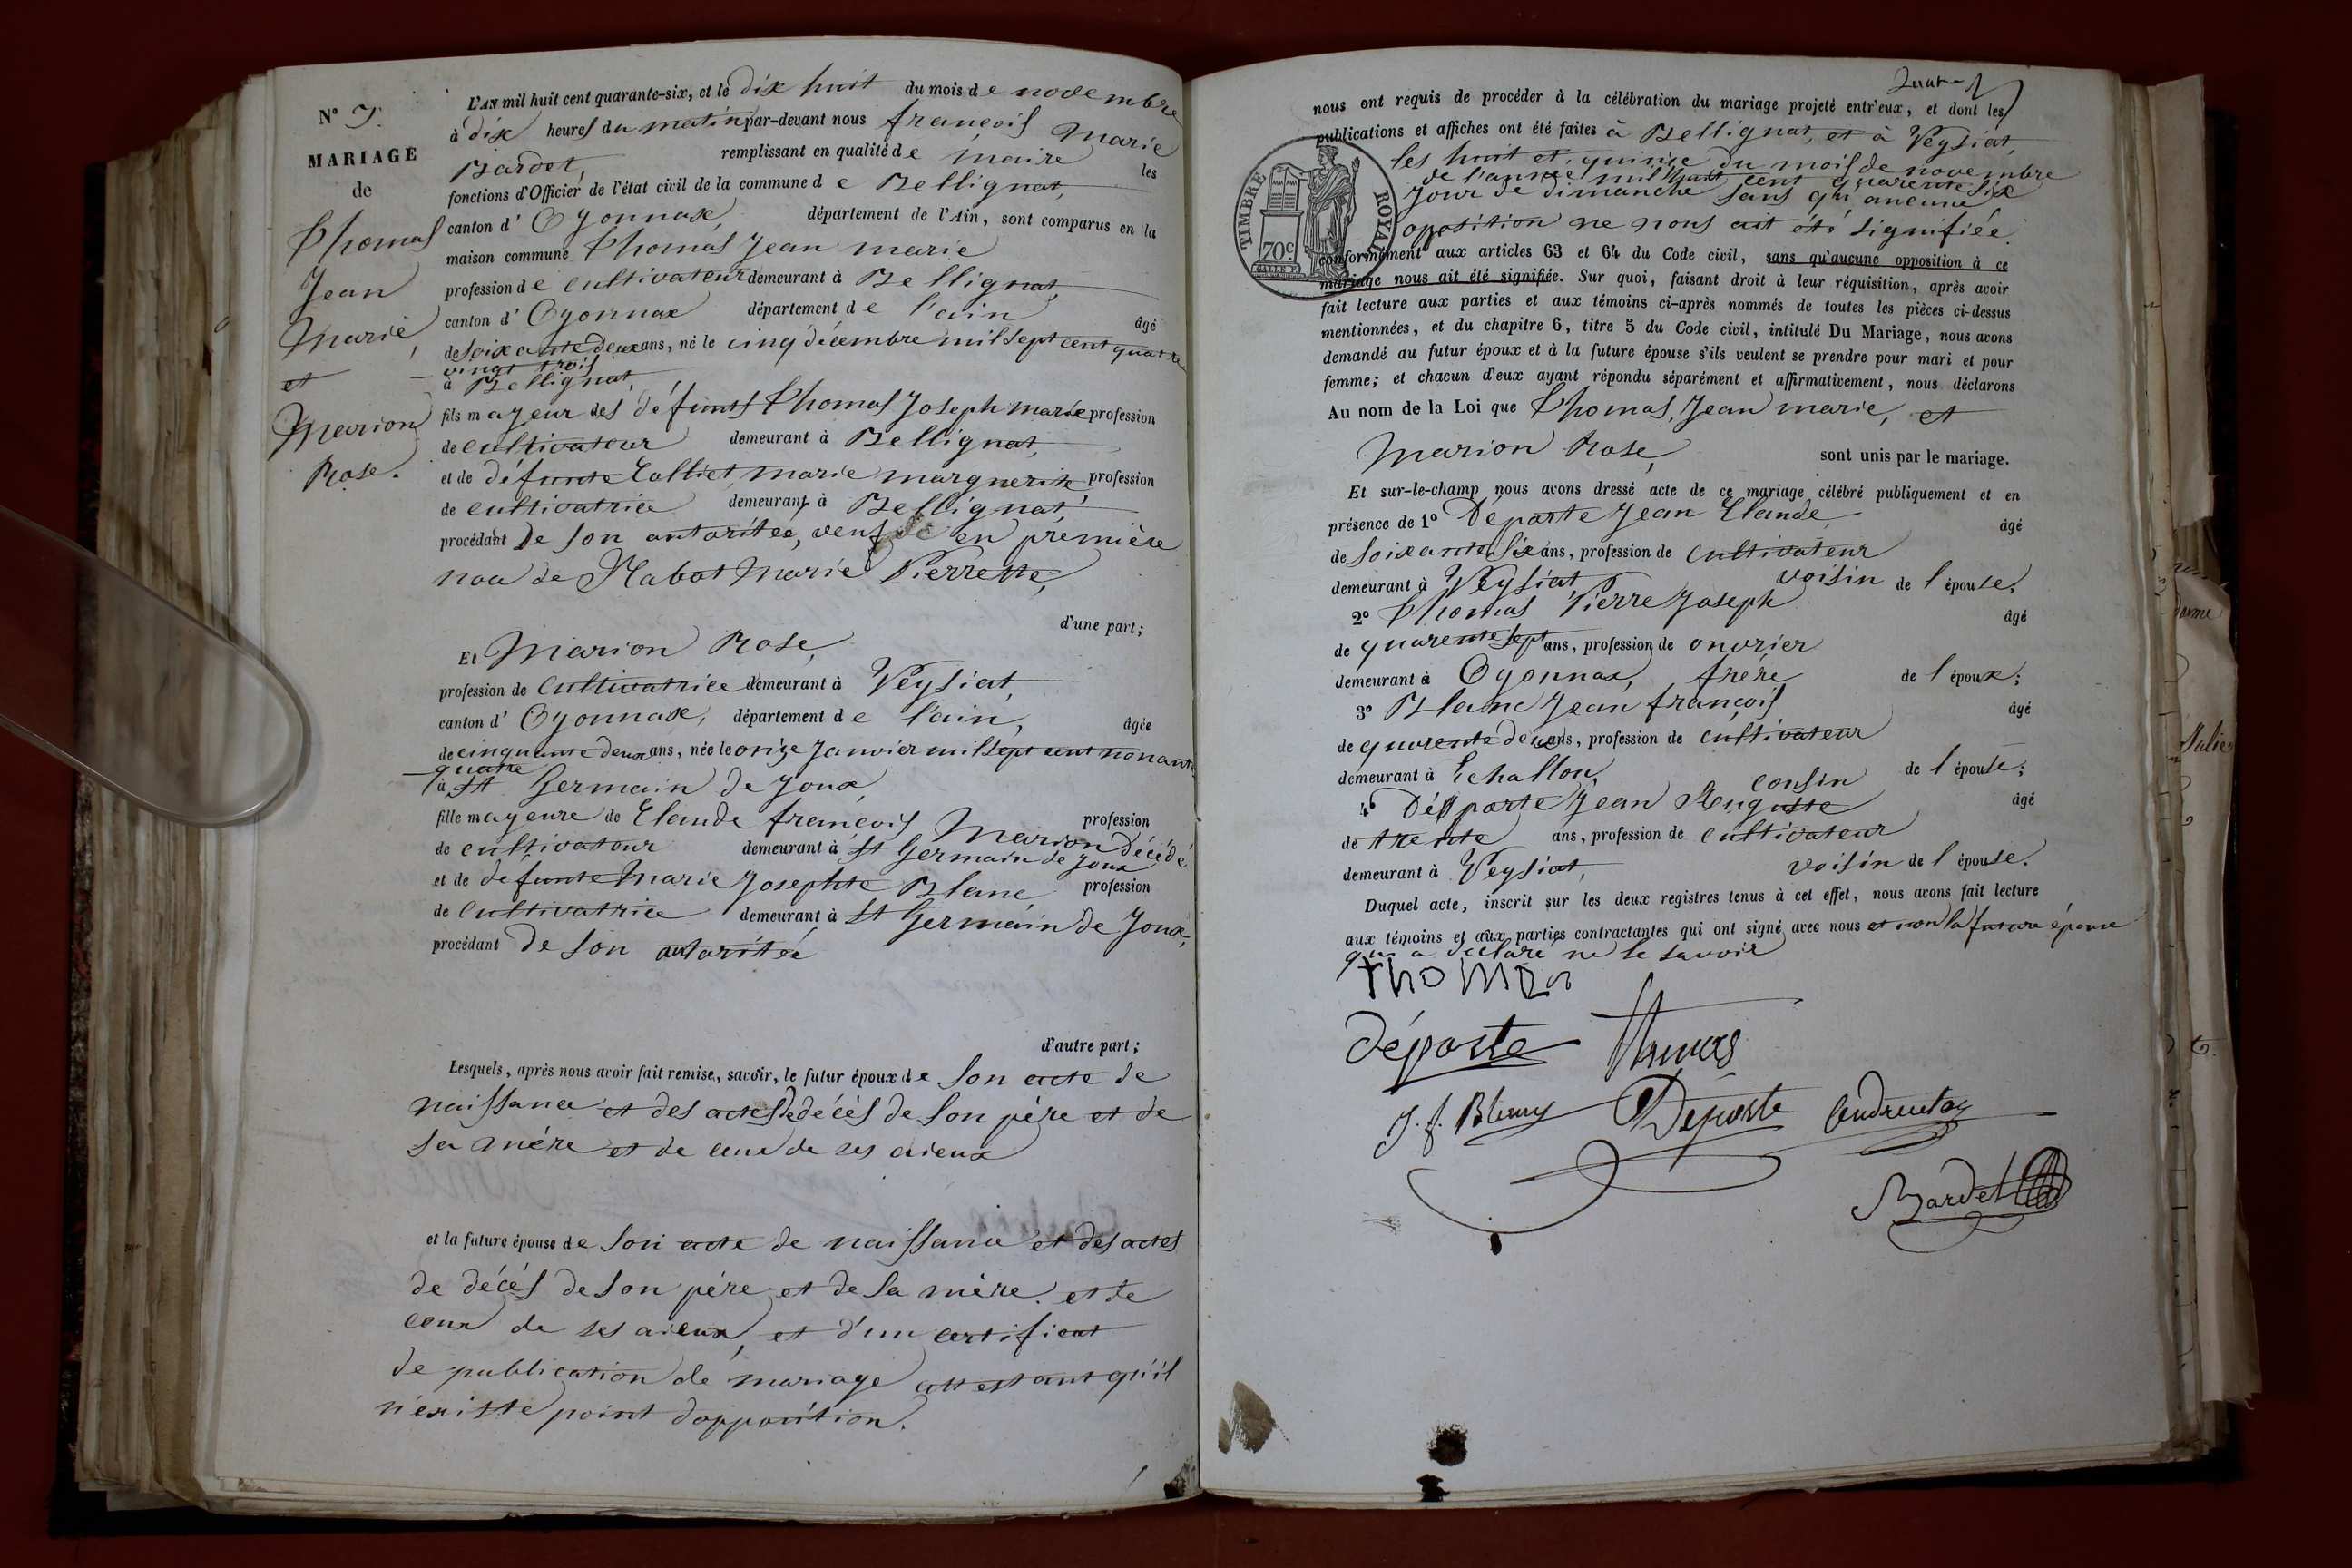 MARIAGE
de
Thomas
Jean
Marie,
et
Marion
Rose.
L'AN mil huit cent quarante-six, et le dix huit du mois de novembre
à dix heures du matin par-devant nous françois Marie
Bardet, remplissant en qualité de maire les
fonctions d'Officier de l'état civil de la commune de Bellignat,
canton d'Oyonnax, département de l'Ain, sont comparus en la
maison commune Thomas Jean marie
profession de cultivateur demeurant à Bellignat,
canton d'Oyonnax département de l'ain âgé
de soixante deux ans, né le cinq décembre mil sept cent quatre
vingt trois
à Bellignat,
fils mayeur des défunts Thomas Joseph marie profession
de cultivateur demeurant à Bellignat,
et de défunte Colliet, marie marguerite, profession
de cultivatrice demeurant à Bellignat,
procédant de son autoritée, veuf en première
noce de Mabot Marie Pierrette,
d'une part;
Et Marion Rose,
profession de cultivatrice demeurant à Veysiat,
canton d'Oyonnax, département de l'ain, âgée
de cinquante deux ans, née le onze Janvier mil sept cent nonante
quatre
à St Germain de Joux
fille mayeure de Claude françois Marion profession
de cultivateur demeurant à St Germain de Joux décédé
et de défunte Marie Josephte Blanc profession
de cultivatrice demeurant à St Germain de Joux,
procédant de son autoritée
d'autre part;
Lesquels, après nous avoir fait remise, savoir, le futur époux de son acte de
naissance et des actes de décès de son père et de
sa mère et de ceux de ses aieux
et la future épouse de son acte de naissance et des actes
de décès de son père et de sa mère. et de
ceux de ses aieux, et d'un certificat
de publication de mariage attestant qu'il
n'existe point d'opposition.
nous ont requis de procéder à la célébration du mariage projeté entr'eux, et dont les
publications et affiches ont été faites à Bellignat, et à Veysiat,
les huit et quinze du mois de novembre
de l'année mil huit cent quarente six
jour de dimanche sans qu'aucune
opposition ne nous ait été signifiée.
TIMBRE ROYAL
70c.
conformément aux articles 63 et 64 du Code civil, sans qu'aucune opposition à ce
mariage nous ait été signifiée. Sur quoi, faisant droit à leur réquisition, après avoir
fait lecture aux parties et aux témoins ci-après nommés de toutes les pièces ci-dessus
mentionnées, et du chapitre 6, titre 5 du Code civil, intitulé Du Mariage, nous avons
demandé au futur époux et à la future épouse s'ils veulent se prendre pour mari et pour
femme; et chacun d'eux ayant répondu séparément et affirmativement, nous déclarons
Au nom de la Loi que Thomas, Jean marie, et
Marion Rose, sont unis par le mariage.
Et sur-le-champ nous avons dressé acte de ce mariage célébré publiquement et en
présence de 1º Déporte Jean Claude, âgé
de soixante six ans, profession de cultivateur
demeurant à Veysiat, voisin de l'épouse.
2º Thomas Pierre Joseph âgé
de quarente sept ans, profession de ouvrier
demeurant à Oyonnax, frère de l'époux;
3º Blanc Jean françois âgé
de quarente deux ans, profession de cultivateur
demeurant à Echallon, cousin de l'épouse;
4º Déporte Jean Auguste âgé
de trente ans, profession de cultivateur
demeurant à Veysiat, voisin de l'épouse.
Duquel acte, inscrit sur les deux registres tenus à cet effet, nous avons fait lecture
aux témoins et aux parties contractantes qui ont signé avec nous et non la future épouse
qui a déclaré ne le savoir
Thomas
Déporte Thomas
J. f. Déporte
Bardet